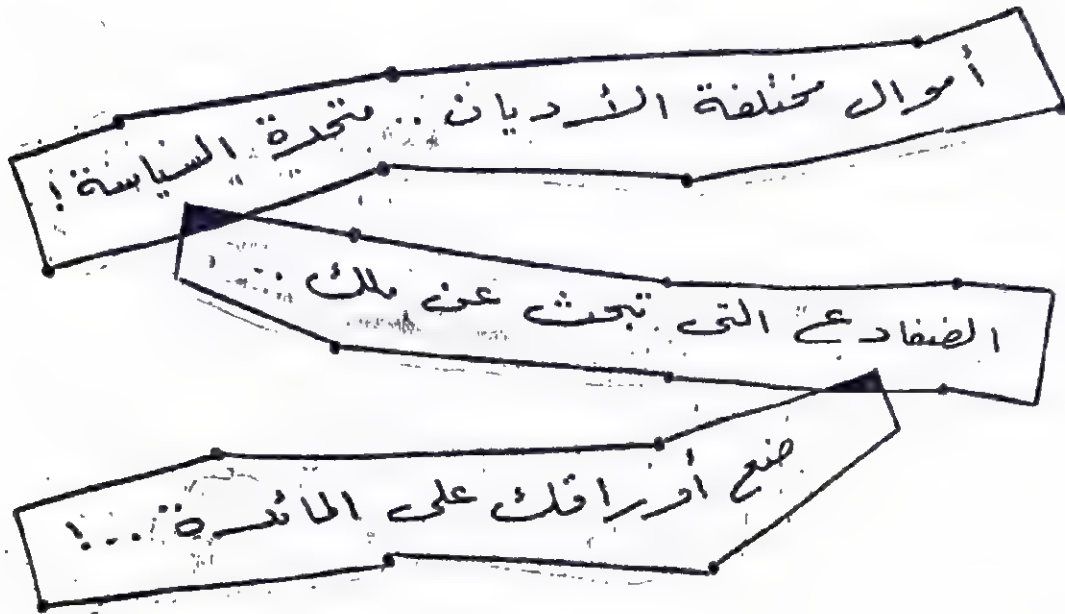 أموال مختلفة الأديان .. متحدة السياسة !
الضفادع التى تبحث عن ملك ...
ضع أوراقك على المائدة ... !